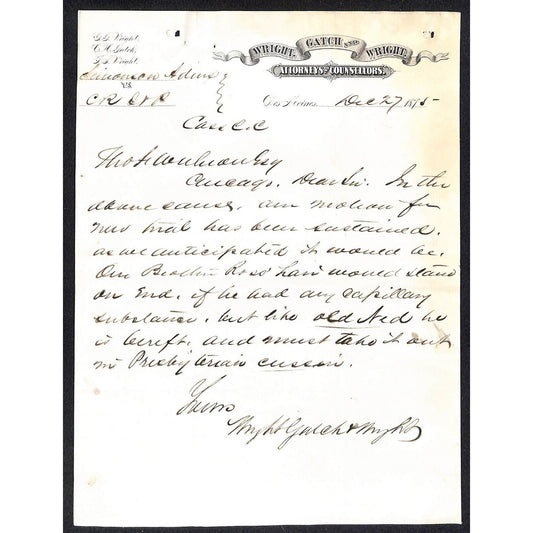 G. G. Wright.
C. H. Gatch.
T. S. Wright.
WRIGHT, GATCH AND WRIGHT,
ATTORNEYS AND COUNSELLORS.
Simonson Admr
vs
C R I & P
Des Moines, Dec 27 1875
Cass C.C
Thos F Esq
Chicago. Dear Sir. In the
above cause, our motion for
new trial has been sustained,
as we anticipated it would be.
Our Brother Ross' hair would stand
on End, if he had any capillary
substance, but like old Ned he
is bereft, and must take it out
in Presbyterian cussin.
Yours
Wright Gatch & Wright